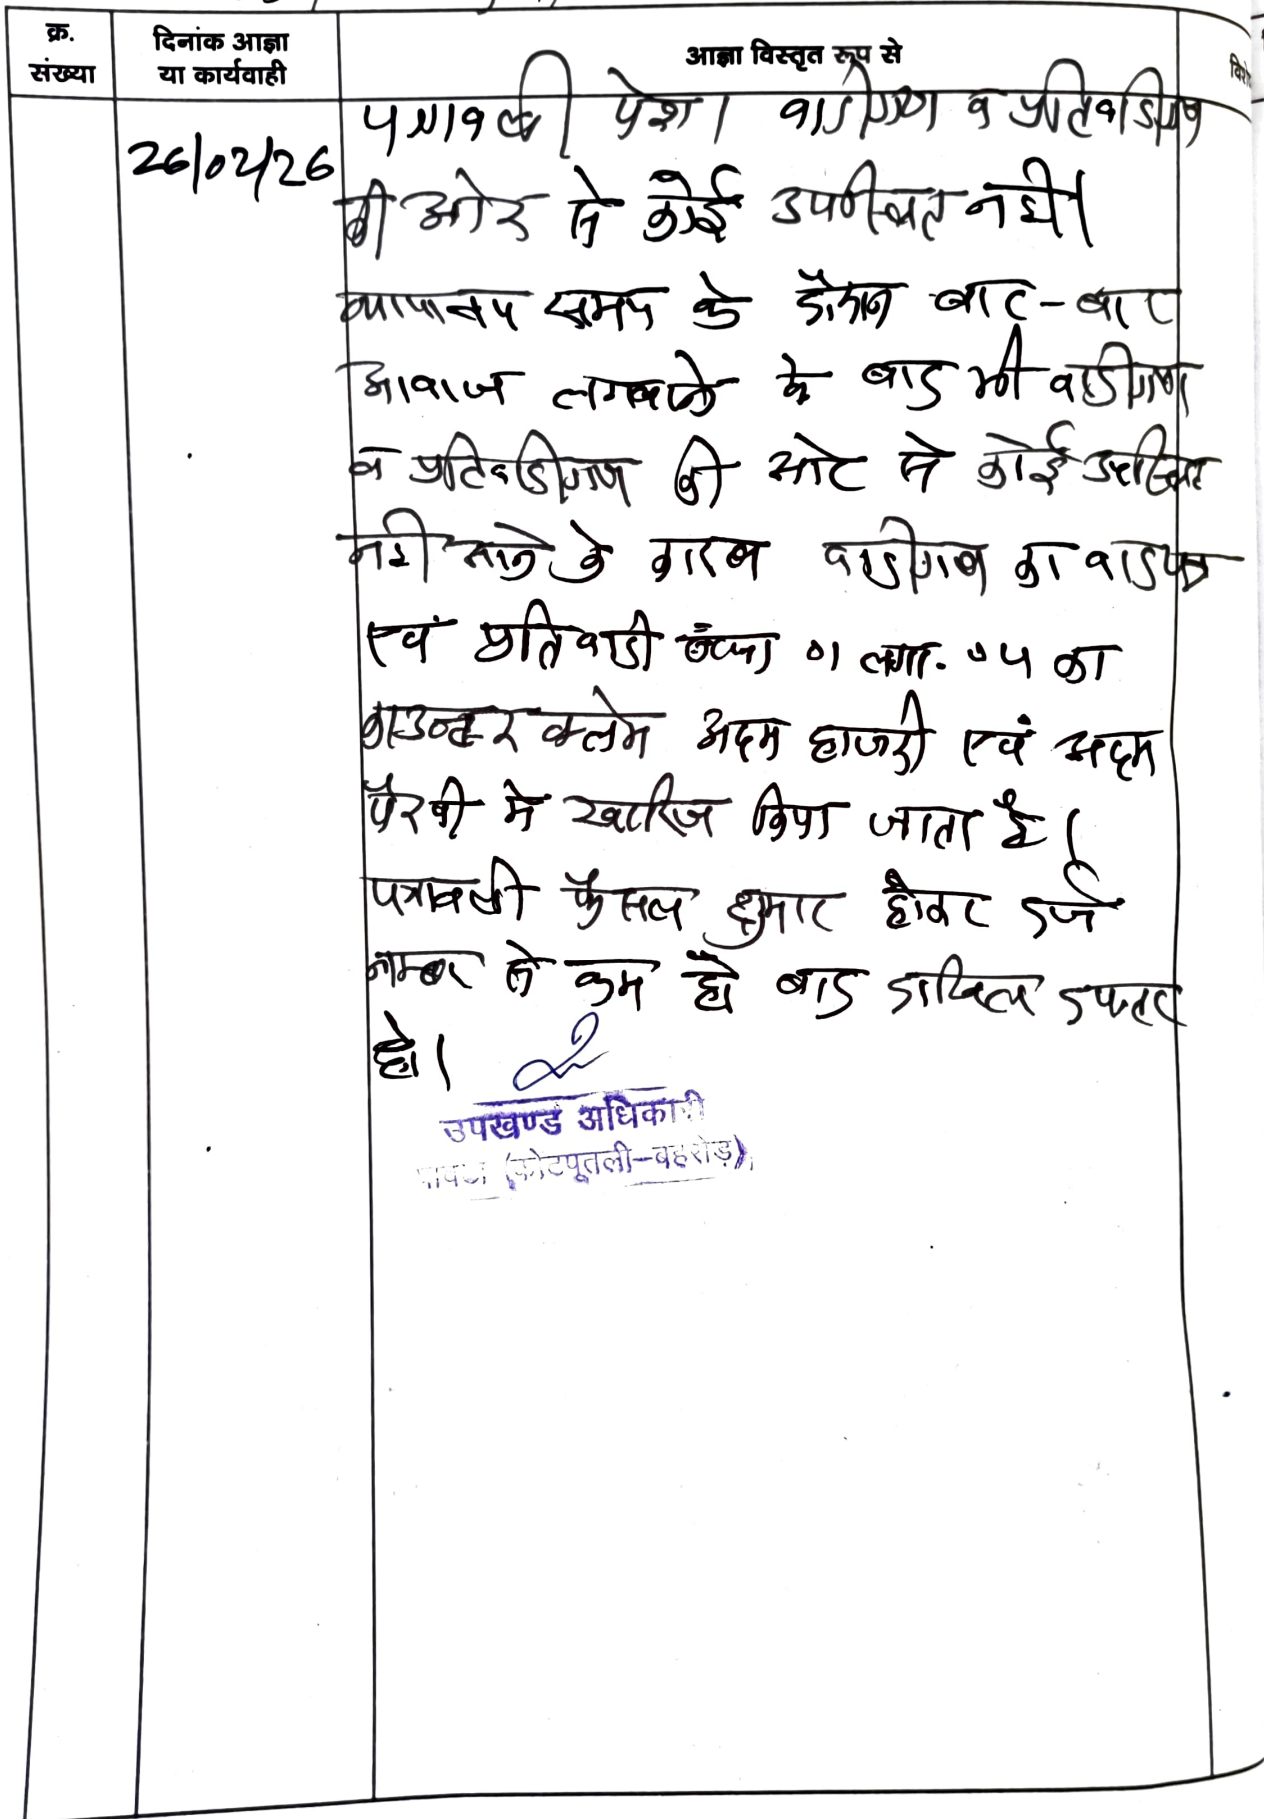 क्र. संख्या
दिनांक आज्ञा या कार्यवाही
आज्ञा विस्तृत रूप से
26/02/26
पत्रावली पेश। वादीगण व प्रतिवादीगण
की ओर से कोई उपस्थित नहीं।
न्यायालय समय के दौरान बार-बार
आवाज लगवाने के बाद भी वादीगण
व प्रतिवादीगण की ओर से कोई उपस्थित
नहीं आने के कारण वादीगण का वादपत्र
एवं प्रतिवादी संख्या 01 लगा. 04 का
काउन्टर क्लेम अदम हाजरी एवं अदम
पैरवी में खारिज किया जाता है।
पत्रावली फैसल शुमार होकर दर्ज
नम्बर से कम हो बाद दाखिल दफ्तर
हो।
उपखण्ड अधिकारी
(कोटपूतली-बहरोड़)